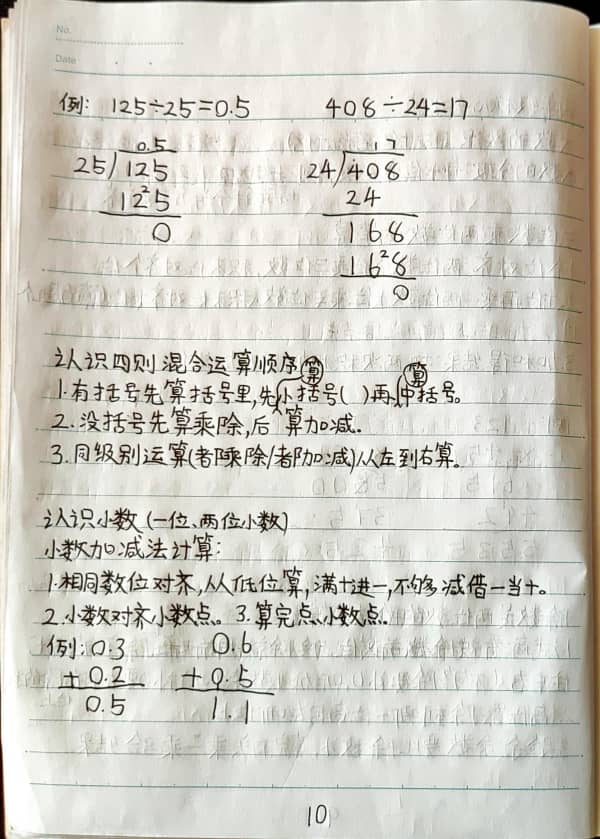 No.
Date
例: 125÷25=0.5 408÷24=17
0.5 17
25/125 24/408
125 24
0 168
168
0
认识四则混合运算顺序
1.有括号先算括号里,先算小括号( )再算中括号。
2.没括号先算乘除,后算加减.
3.同级别运算(都乘除/都加减)从左到右算。
认识小数(一位、两位小数)
小数加减法计算:
1.相同数位对齐,从低位算,满十进一,不够减借一当十。
2.小数对齐小数点。3.算完点小数点。
例:0.3 0.6
+0.2 +0.5
0.5 1.1
10